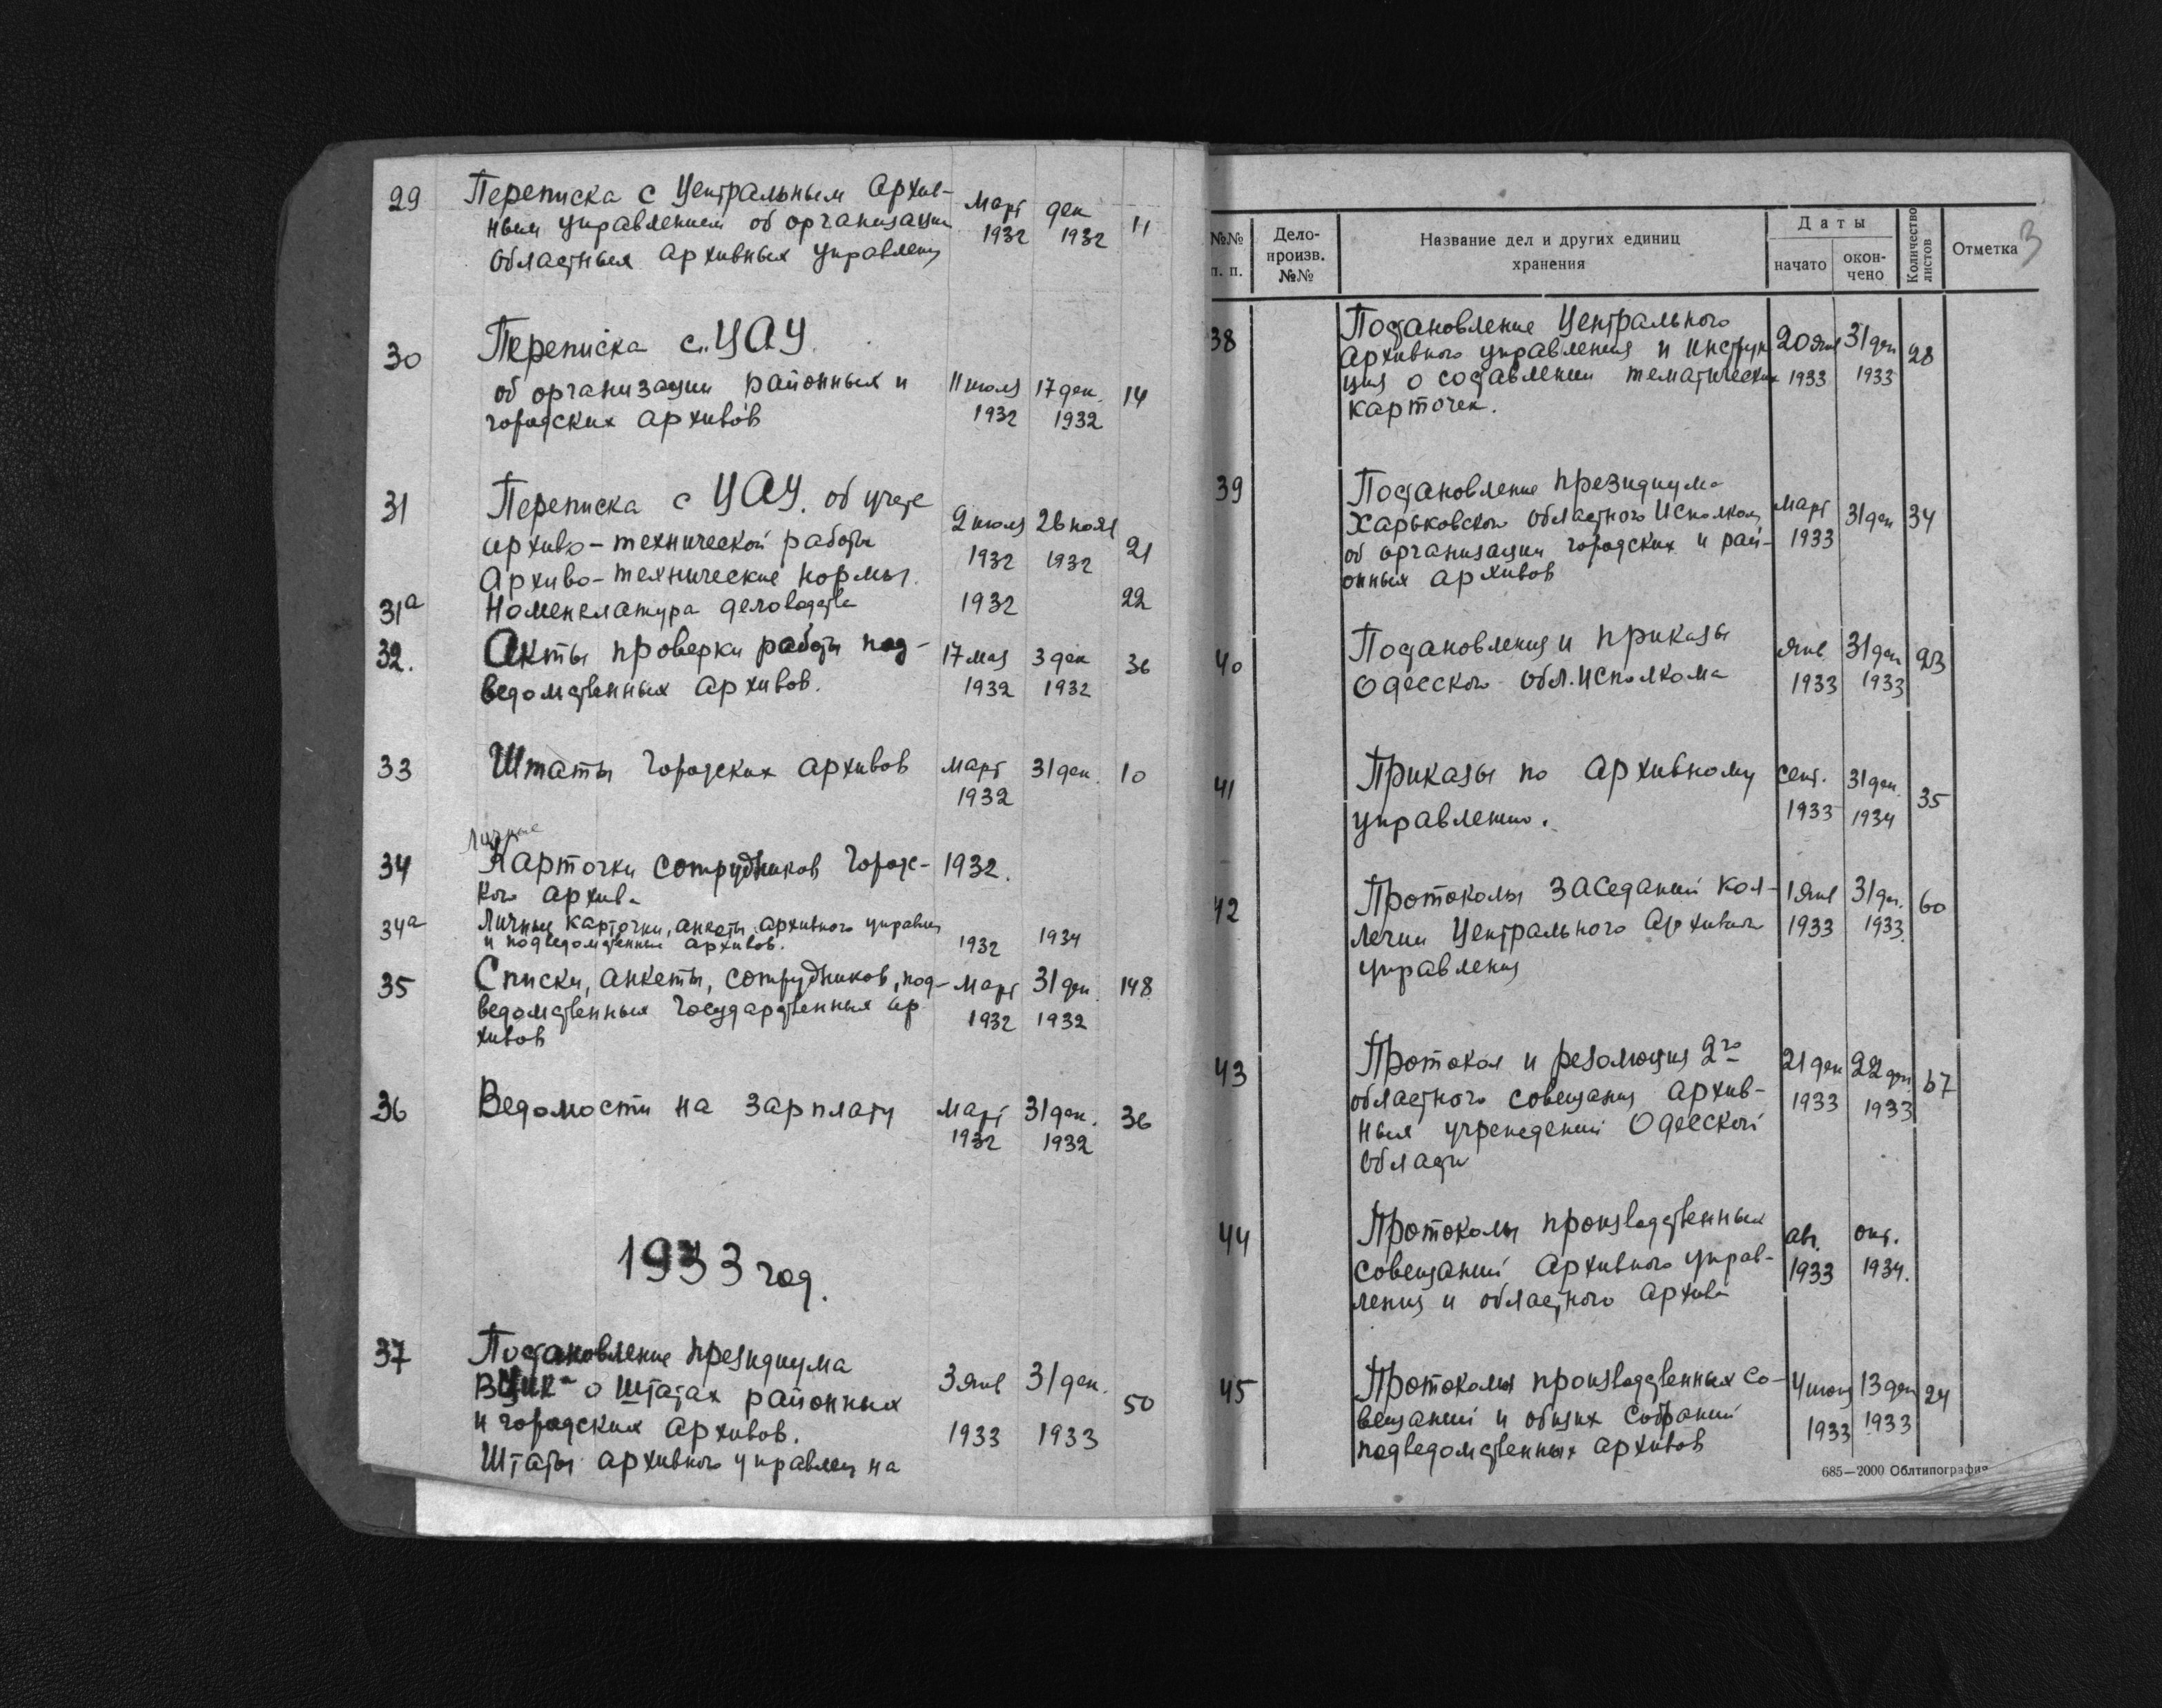 29 Переписка с Центральным Архив- март ден 11
ным управлением об организации 1932 1932
областных архивных управлен
30 Переписка с ЦАУ
об организации районных и 11 июля 17 ден. 14
городских архивов 1932 1932
31 Переписка с ЦАУ. об учете 2 июля 26 нояя
архиво-технической работы 1932 1932 21
Архиво-технические нормы.
31а Номенклатура деловодства 1932 22
32. Акты проверки работы под- 17 мая 3 дек 36
ведомственных архивов. 1932 1932
33 Штаты городских архивов март 31 дек. 10
1932
Личные
34 Карточки сотрудников городс- 1932.
кого архива
34а Личные карточки, анкеты архивного управлен
и подведомственных архивов. 1932 1934
35 Списки, анкеты, сотрудников, под- март 31 дек. 148
ведомственных государственных ар- 1932 1932
хивов
36 Ведомости на зарплату март 31 дек. 36
1932 1932
1933 год.
37 Постановление президиума
ВЦИКа о штатах районных 3 янв 31 дек. 50
и городских архивов. 1933 1933
Штаты архивного управлен на
3
№№ п. п. Дело-произв. №№ Название дел и других единиц хранения Даты начато окон-чено Количество листов Отметка
38 Постановление Центрального
архивного управления и инструк 20 янв 31 дек 28
ция о составлении тематических 1933 1933
карточек.
39 Постановление президиума
Харьковского областного Исполком март 31 дек 34
об организации городских и рай- 1933
онных архивов
40 Постановления и приказы янв 31 дек 23
Одесского обл.исполкома 1933 1933
41 Приказы по архивному сент. 31 дек. 35
управлению. 1933 1934
42 Протоколы заседаний кол- 1 янв 31 дек. 60
легии Центрального Архивного 1933 1933.
управления
43 Протокол и резолюция 2го 21 дек 22 дек. 67
областного совещания архив- 1933 1933
ных учреждений Одесской
области
44 Протоколы производственных авг. окт.
совещаний Архивного управ- 1933 1934.
ления и областного архива
45 Протоколы производственных со- 13 дек 24
вещаний и общих собраний 1933 1933
подведомственных архивов
685—2000 Облтипография